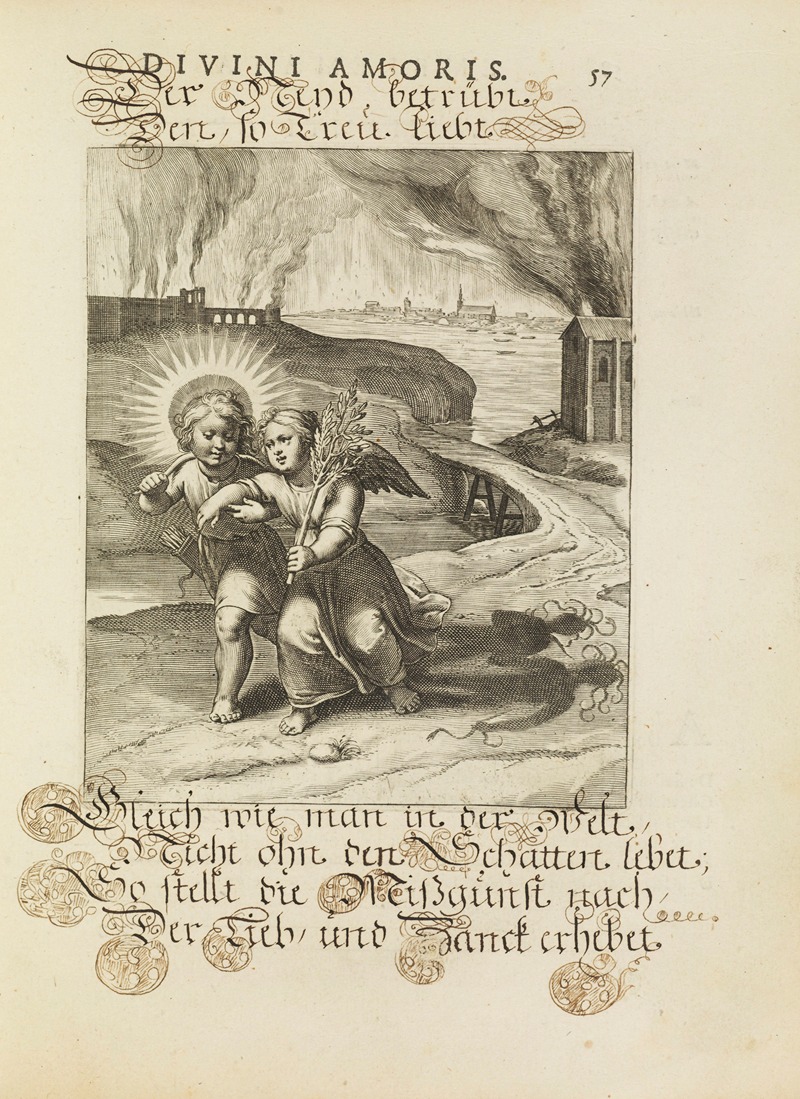 DIVINI AMORIS. 57
Der Neyd, betrübt
Den, so Treu liebt
Gleich wie man in der Welt,
Nicht ohn den Schatten lebet;
So stellt die Mißgunst nach,
Der Lieb, und Zanck erhebet.